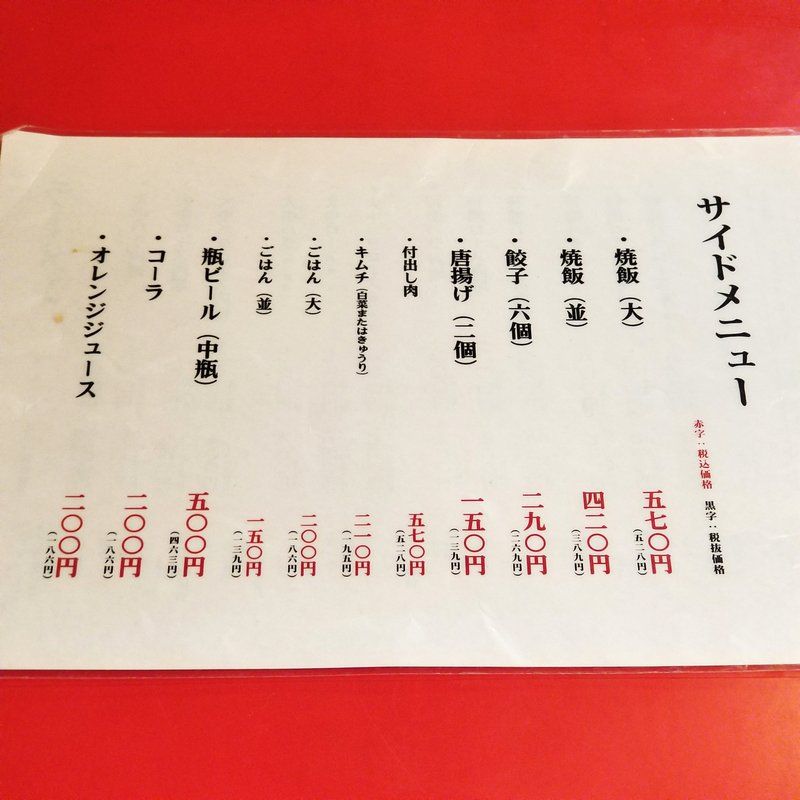 サイドメニュー
赤字：税込価格　黒字：税抜価格
・焼飯（大）　五七〇円（五二八円）
・焼飯（並）　四二〇円（三八九円）
・餃子（六個）　二九〇円（二六九円）
・唐揚げ（二個）　一五〇円（一三九円）
・付出し肉　五七〇円（五二八円）
・キムチ（白菜またはきゅうり）　二一〇円（一九五円）
・ごはん（大）　二〇〇円（一八六円）
・ごはん（並）　一五〇円（一三九円）
・瓶ビール（中瓶）　五〇〇円（四六三円）
・コーラ　二〇〇円（一八六円）
・オレンジジュース　二〇〇円（一八六円）